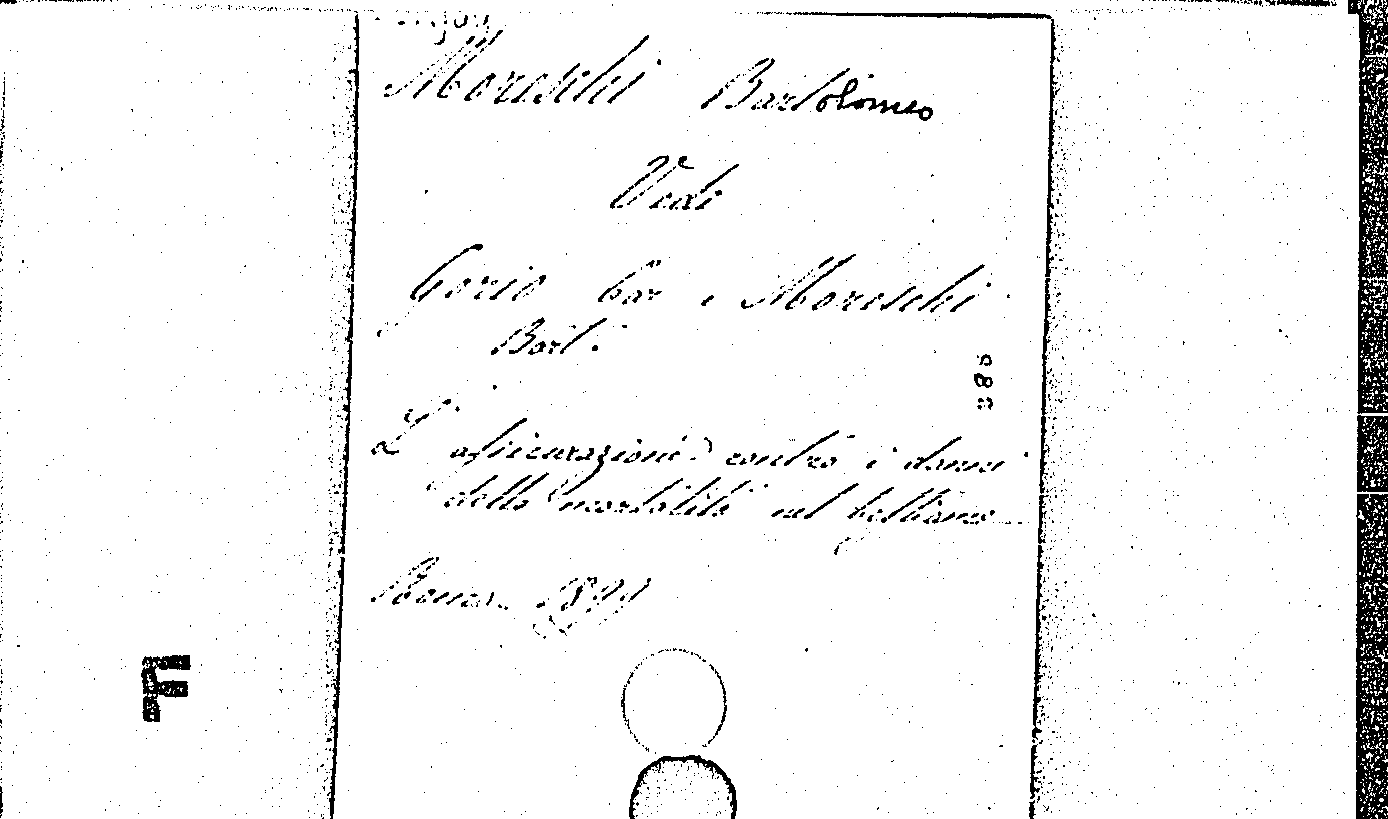 Moreschi Bartolomeo
Vedi
Gorio Car e Moreschi
Bart.
L' assicurazione contro i danni
della mortalità nel bestiame
Roma. 1899
F